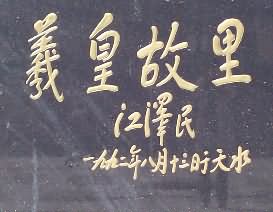 羲皇故里
江澤民
一九九二年八月十三日於天水